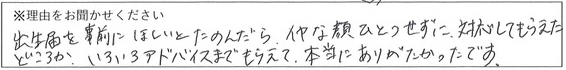 ※理由をお聞かせください
出生届を事前にほしいとたのんだら、イヤな顔ひとつせずに、対応してもらえた
どころか、いろいろアドバイスまでもらえて、本当にありがたかったです。